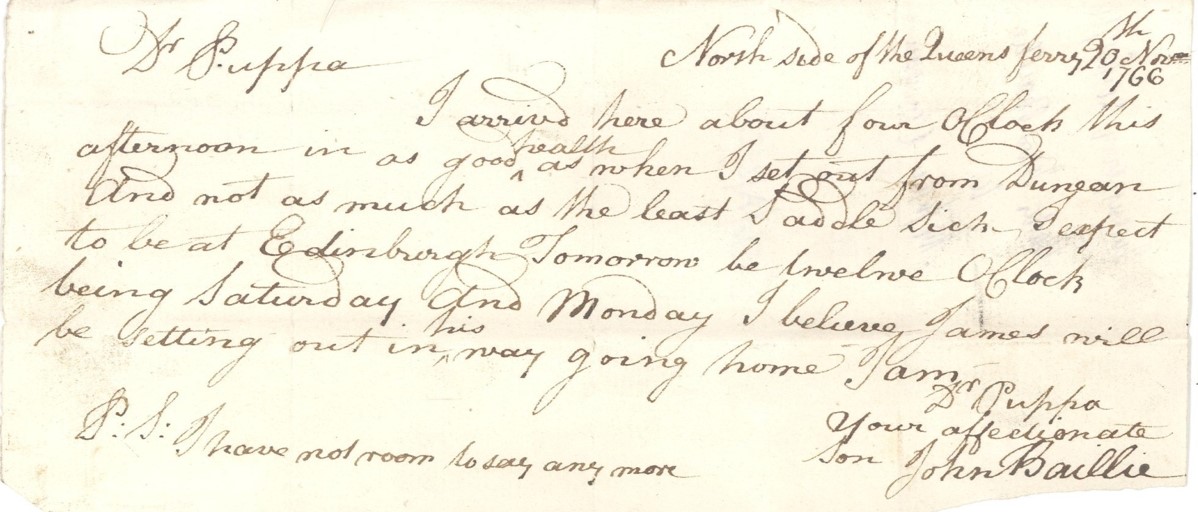 Dr Puppa
North side of the Queens ferry 20th Novr
1766
I arrivd here about four OClock this
afternoon in as good health as when I set out from Dungan
and not as much as the least Saddle sick I expect
to be at Edinburgh Tomorrow be twelwe OClock
being Saturday and Monday I believe James will
be setting out in his way going home I am
Dr Puppa
Your affectionate
Son John Baillie
P: S: I have not room to say any more